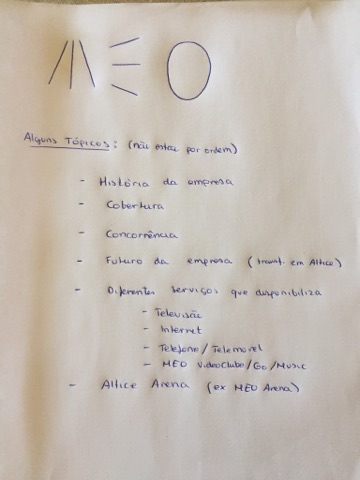 MEO
Alguns Tópicos: (não estão por ordem)
- História da empresa
- Cobertura
- Concorrência
- Futuro da empresa (transf. em Altice)
- Diferentes serviços que disponibiliza
- Televisão
- Internet
- Telefone/Telemóvel
- MEO VideoClube/Go/Music
- Altice Arena (ex MEO Arena)